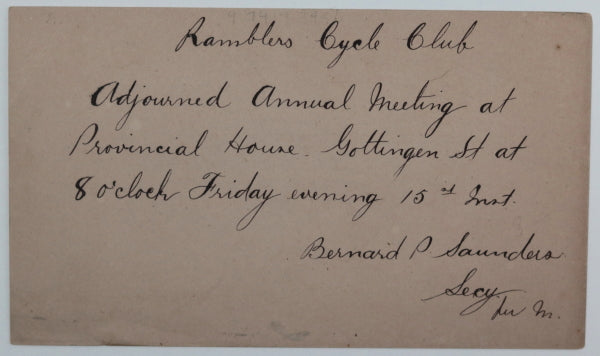 Ramblers Cycle Club
Adjourned Annual Meeting at
Provincial House. Gottingen St at
8 o'clock Friday evening 15st Inst.
Bernard P Saunders
Secy.
M.